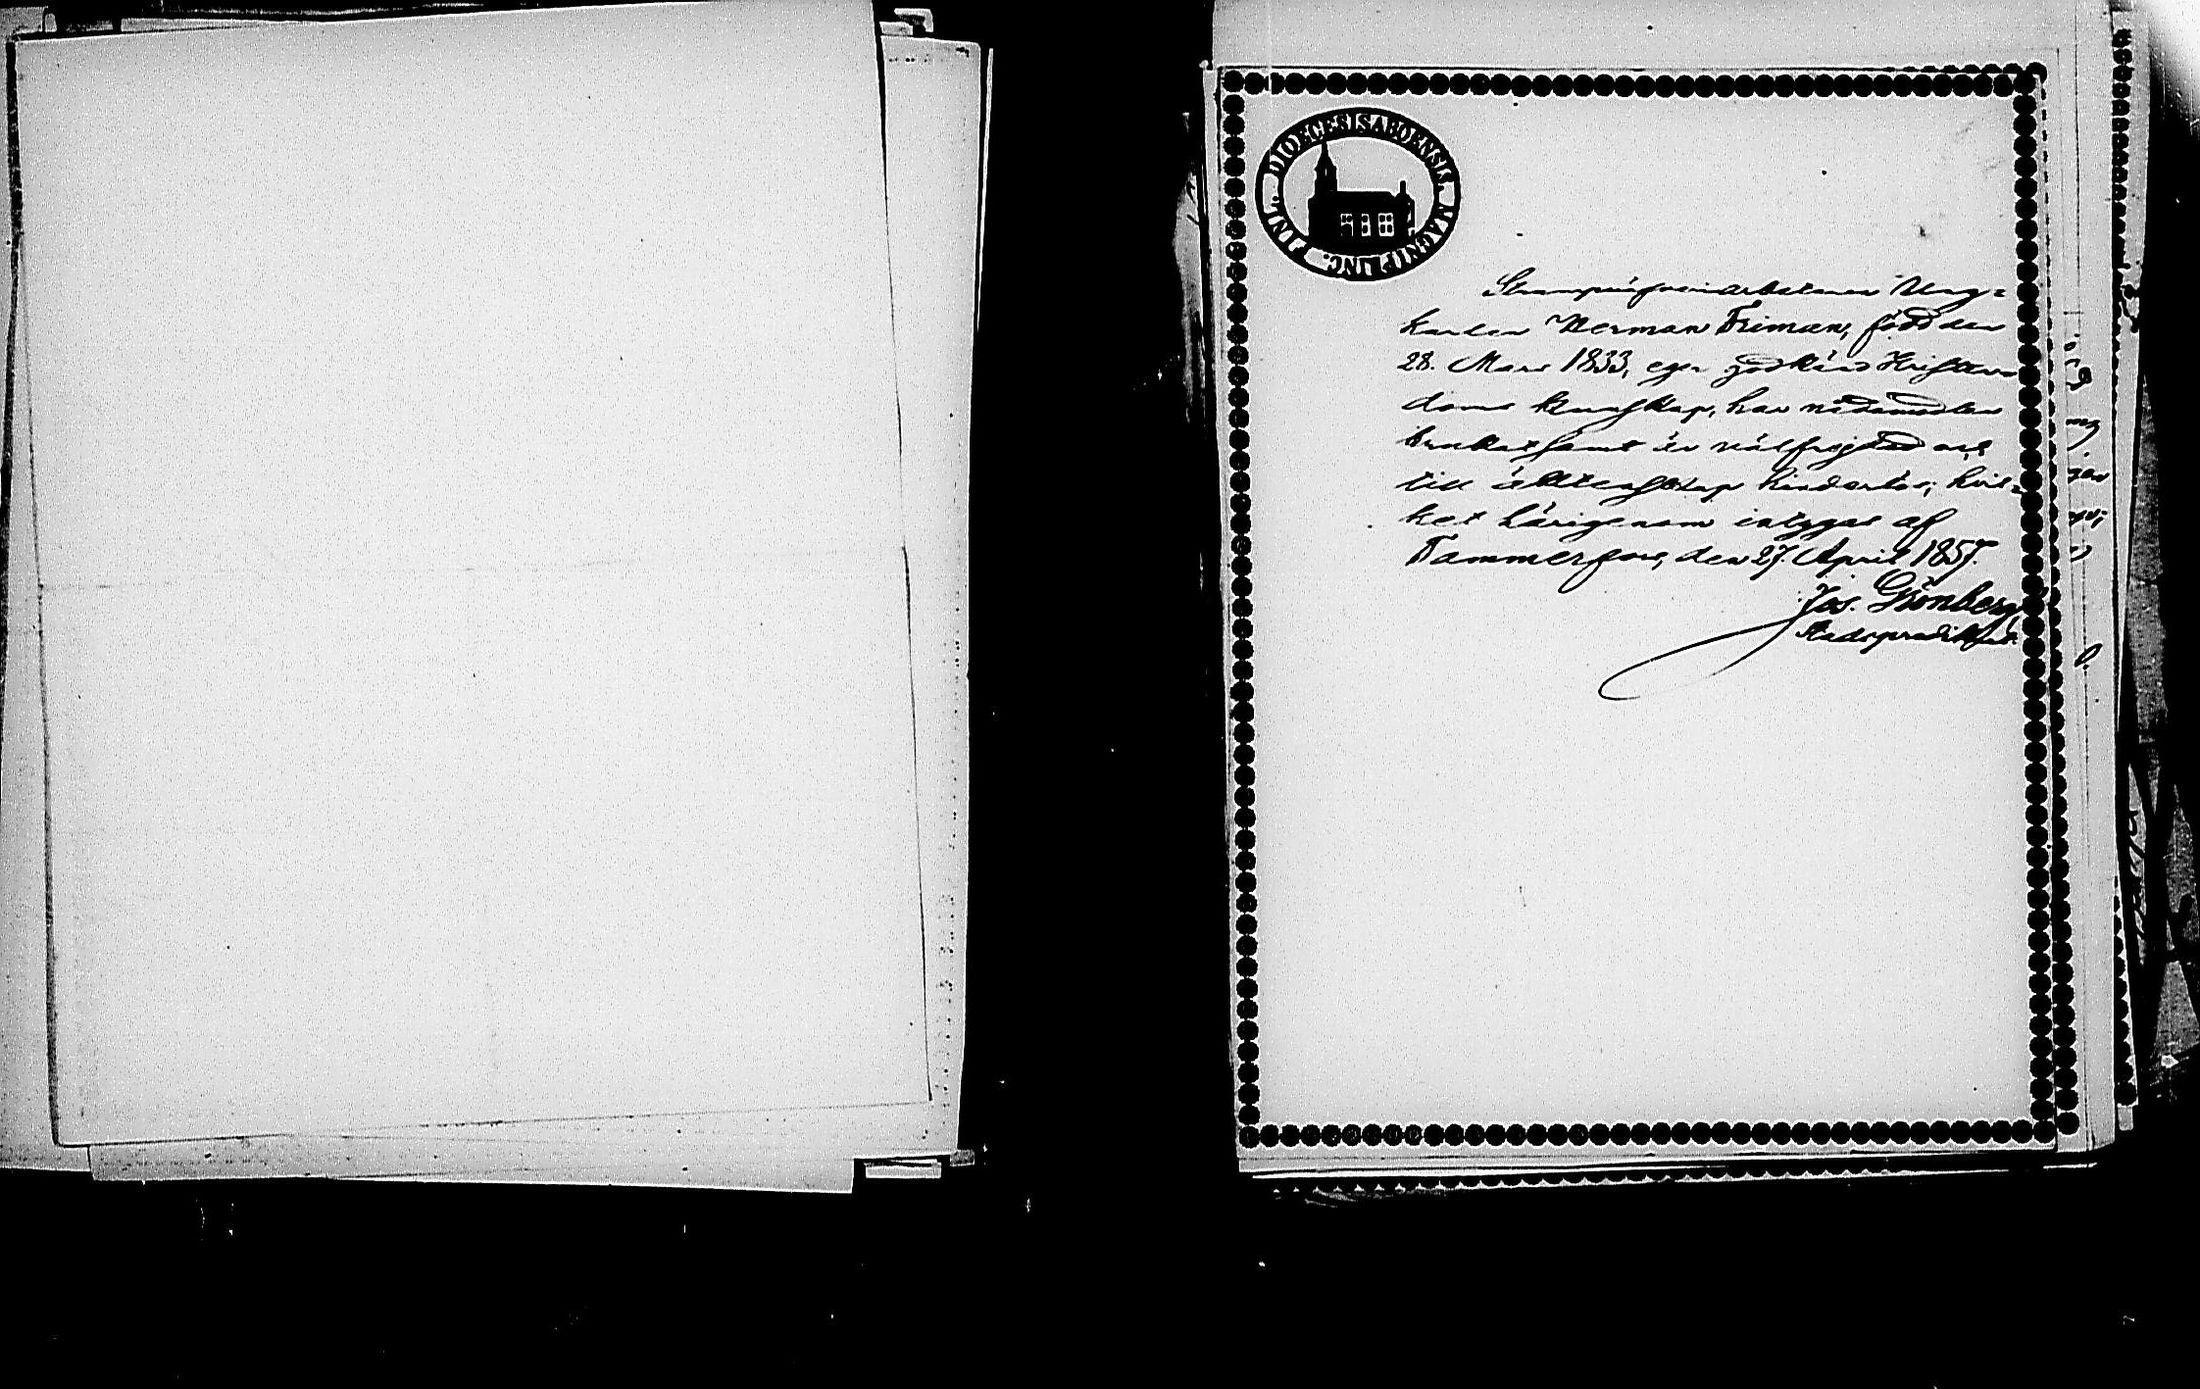 DIOECESIS ABOENSIS. MAGNI PRINC. FINL.
Strumpväfveriarbetaren Ung=
karlen Herman Friman, född den
28. Mars 1833, eger godkänd Kristen
doms kunskap, har nådamedlen
brukat samt är välfrejdad och
till äktenskap hinderlös; hvil=
ket härigenom intygas af
Tammerfors, den 27. April 1857.
Jos. Grönberg
Stadspredikant.